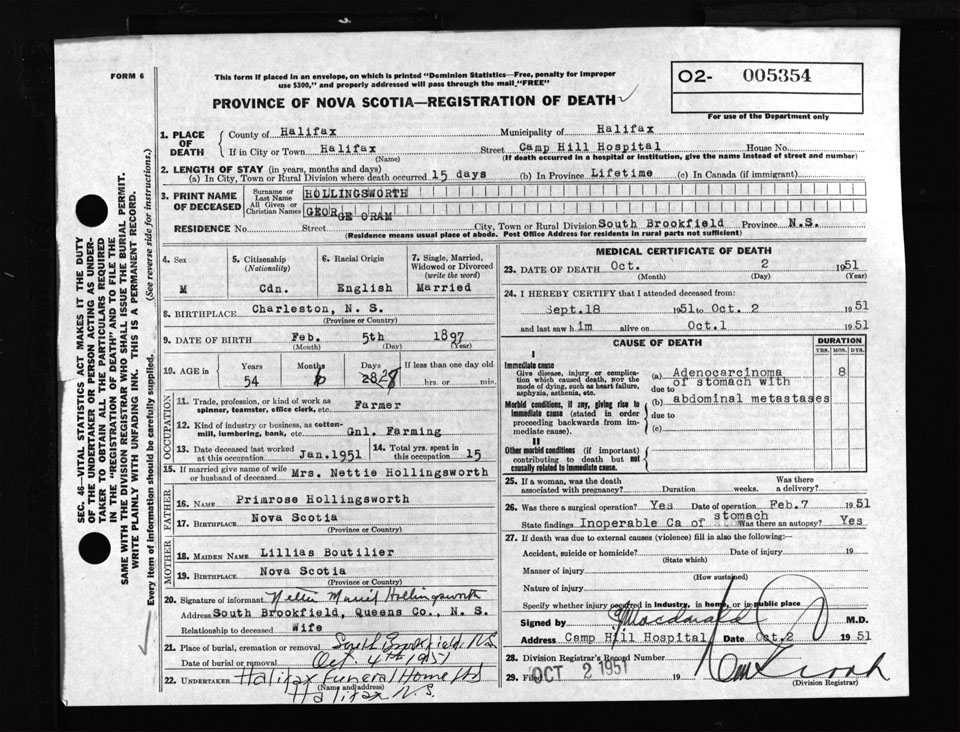 FORM 6
This form if placed in an envelope, on which is printed "Dominion Statistics—Free, penalty for improper
use $300," and properly addressed will pass through the mail "FREE"
O2- 005354
For use of the Department only
PROVINCE OF NOVA SCOTIA—REGISTRATION OF DEATH
1. PLACE OF DEATH
County of Halifax Municipality of Halifax
If in City or Town Halifax Street Camp Hill Hospital House No.
(Name) (If death occurred in a hospital or institution, give the name instead of street and number)
2. LENGTH OF STAY (in years, months and days)
(a) In City, Town or Rural Division where death occurred 15 days (b) In Province Lifetime (c) In Canada (if immigrant)
3. PRINT NAME OF DECEASED
Surname or Last Name HOLLINGSWORTH
All Given or Christian Names GEORGE ORAM
RESIDENCE No. Street City, Town or Rural Division South Brookfield Province N.S.
(Residence means usual place of abode. Post Office Address for residents in rural parts not sufficient)
SEC. 46—VITAL STATISTICS ACT MAKES IT THE DUTY
OF THE UNDERTAKER OR PERSON ACTING AS UNDER-
TAKER TO OBTAIN ALL THE PARTICULARS REQUIRED
IN THE "REGISTRATION OF DEATH" AND TO FILE THE
SAME WITH THE DIVISION REGISTRAR WHO SHALL ISSUE THE BURIAL PERMIT.
WRITE PLAINLY WITH UNFADING INK. THIS IS A PERMANENT RECORD.
Every item of information should be carefully supplied. (See reverse side for instructions.)
4. Sex 5. Citizenship 6. Racial Origin 7. Single, Married,
(Nationality) Widowed or Divorced
(write the word)
M Cdn. English Married
8. BIRTHPLACE Charleston, N. S.
(Province or Country)
9. DATE OF BIRTH Feb. 5th 1897
(Month) (Day) (Year)
10. AGE in Years Months Days If less than one day old
54 28 28 hrs. or min.
OCCUPATION
11. Trade, profession, or kind of work as
spinner, teamster, office clerk, etc. Farmer
12. Kind of industry or business, as cotton-
mill, lumbering, bank, etc. Gnl. Farming
13. Date deceased last worked
at this occupation Jan.1951
14. Total yrs. spent in
this occupation 15
15. If married give name of wife
or husband of deceased Mrs. Nettie Hollingsworth
FATHER
16. NAME Primrose Hollingsworth
17. BIRTHPLACE Nova Scotia
(Province or Country)
MOTHER
18. MAIDEN NAME Lillias Boutilier
19. BIRTHPLACE Nova Scotia
(Province or Country)
20. Signature of informant Nellie Muriel Hollingsworth
Address South Brookfield, Queens Co., N. S.
Relationship to deceased Wife
21. Place of burial, cremation or removal South Brookfield N.S.
Date of burial or removal Oct 4th 1951
22. UNDERTAKER Halifax Funeral Home Ltd
(Name and address)
Halifax N.S.
MEDICAL CERTIFICATE OF DEATH
23. DATE OF DEATH Oct. 2 1951
(Month) (Day) (Year)
24. I HEREBY CERTIFY that I attended deceased from:
Sept.18 1951 to Oct. 2 1951
and last saw him alive on Oct.1 1951
CAUSE OF DEATH DURATION
YRS. MOS. DYS.
I
Immediate cause
Give disease, injury or complica-
tion which caused death, NOT the
mode of dying, such as heart failure,
asphyxia, asthenia, etc.
(a) Adenocarcinoma 8
of stomach with
due to
Morbid conditions, if any, giving rise to
immediate cause (stated in order
proceeding backwards from im-
mediate cause).
(b) abdominal metastases
due to
(c)
II
Other morbid conditions (if important)
contributing to death but not
causally related to immediate cause.
25. If a woman, was the death Was there
associated with pregnancy? Duration weeks. a delivery?
26. Was there a surgical operation? Yes Date of operation Feb.7 1951
State findings Inoperable Ca of stomach Was there an autopsy? Yes
27. If death was due to external causes (violence) fill in also the following:—
Accident, suicide or homicide? Date of injury 19
(State which)
Manner of injury
(How sustained)
Nature of injury
Specify whether injury occurred in industry, in home, or in public place
Signed by Macdonald M.D.
Address Camp Hill Hospital Date Oct.2 1951
28. Division Registrar's Record Number
29. Filed OCT 2 1951 19
(Division Registrar)